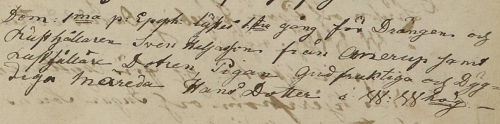 Dom: 1ma p. Epiph. lystes 1sta gång för Drängen och
Rusthållaren Sven Helgesson från Amerup samt
Rusthållare Dotren Pigan Gudfruktiga och Dyg-
diga Märeda Hans Dotter i